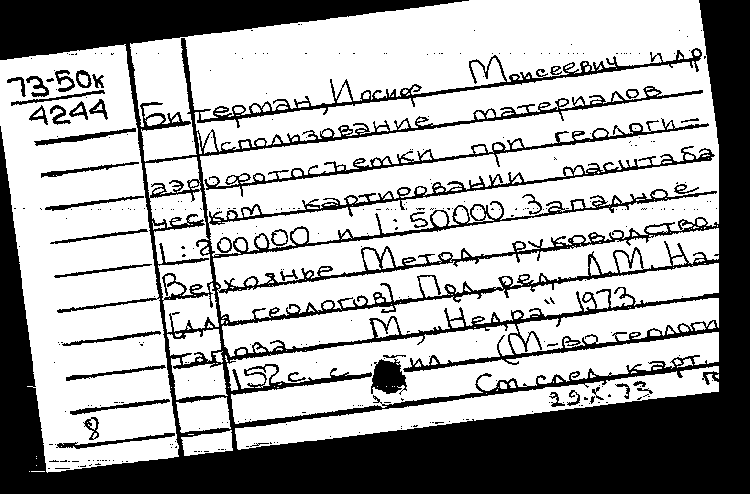 73-50к
4244
Битерман, Иосиф Моисеевич и др.
Использование материалов
аэрофотосъемки при геологи-
ческом картировании масштаба
1:200000 и 1:50000. Западное
Верхоянье. Метод. руководство.
[для геологов] Под. ред. Л.М. На-
тапова. М., "Недра", 1973.
152 с. с ил. (М-во геологи
См. след. карт.
29.X.73
8